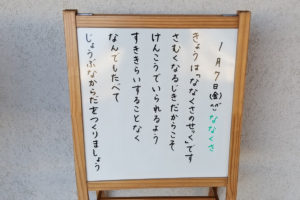 1月7日(金)
ななくさ
きょうは「ななくさのせっく」です
さむくなるじきだからこそ
けんこうでいられるよう
すききらいすることなく
なんでもたべて
じょうぶなからだをつくりましょう